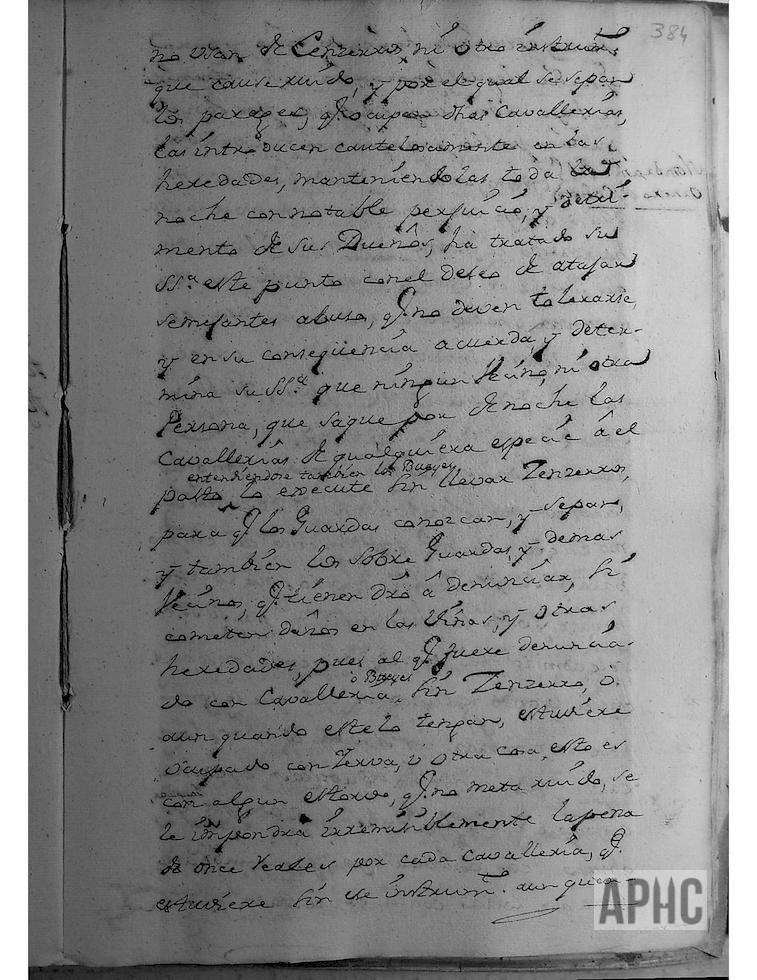 384
no usan de Cenzerros, ni otro instrum.to
que cause ruido, y por el qual se sepan
los parages, q.e ocupan dhas Cavallerias,
las introducen cautelosamente en las
heredades, manteniendolas toda la
noche con notable perjuicio, y detri-
mento de sus Dueños, ha tratado su
SS.a este punto con el deseo de atajar
semejantes abusos, q.e no deven tolerarse,
y en su consequencia acuerda, y deter-
mina su SS.a que ningun Vecino, ni otra
Persona, que saque por de noche las
Cavallerias de qualquiera especie â el
entendiendose tambien los Bueyes
pasto lo execute sin llevar Zenzerros,
para q.e los Guardas conozcan, y sepan,
y tambien los sobre Guardas, y demas
Vecinos, q.e tienen dró â denunciar, si
cometen daños en las Viñas, y otras
heredades, pues al q.e fuere denuncia-
o Bueyes
do con Cavalleria, sin Zenzerro, o
aun quando este lo tengan, estuviere
ocupado con Yerva, u otra cosa, esto es
con algun estorvo, q.e no meta ruido, se
le impondra irremisiblemente la pena
de once reales por cada Cavalleria, q.e
estuviere sin ese instrum.to aun quan-
APHC